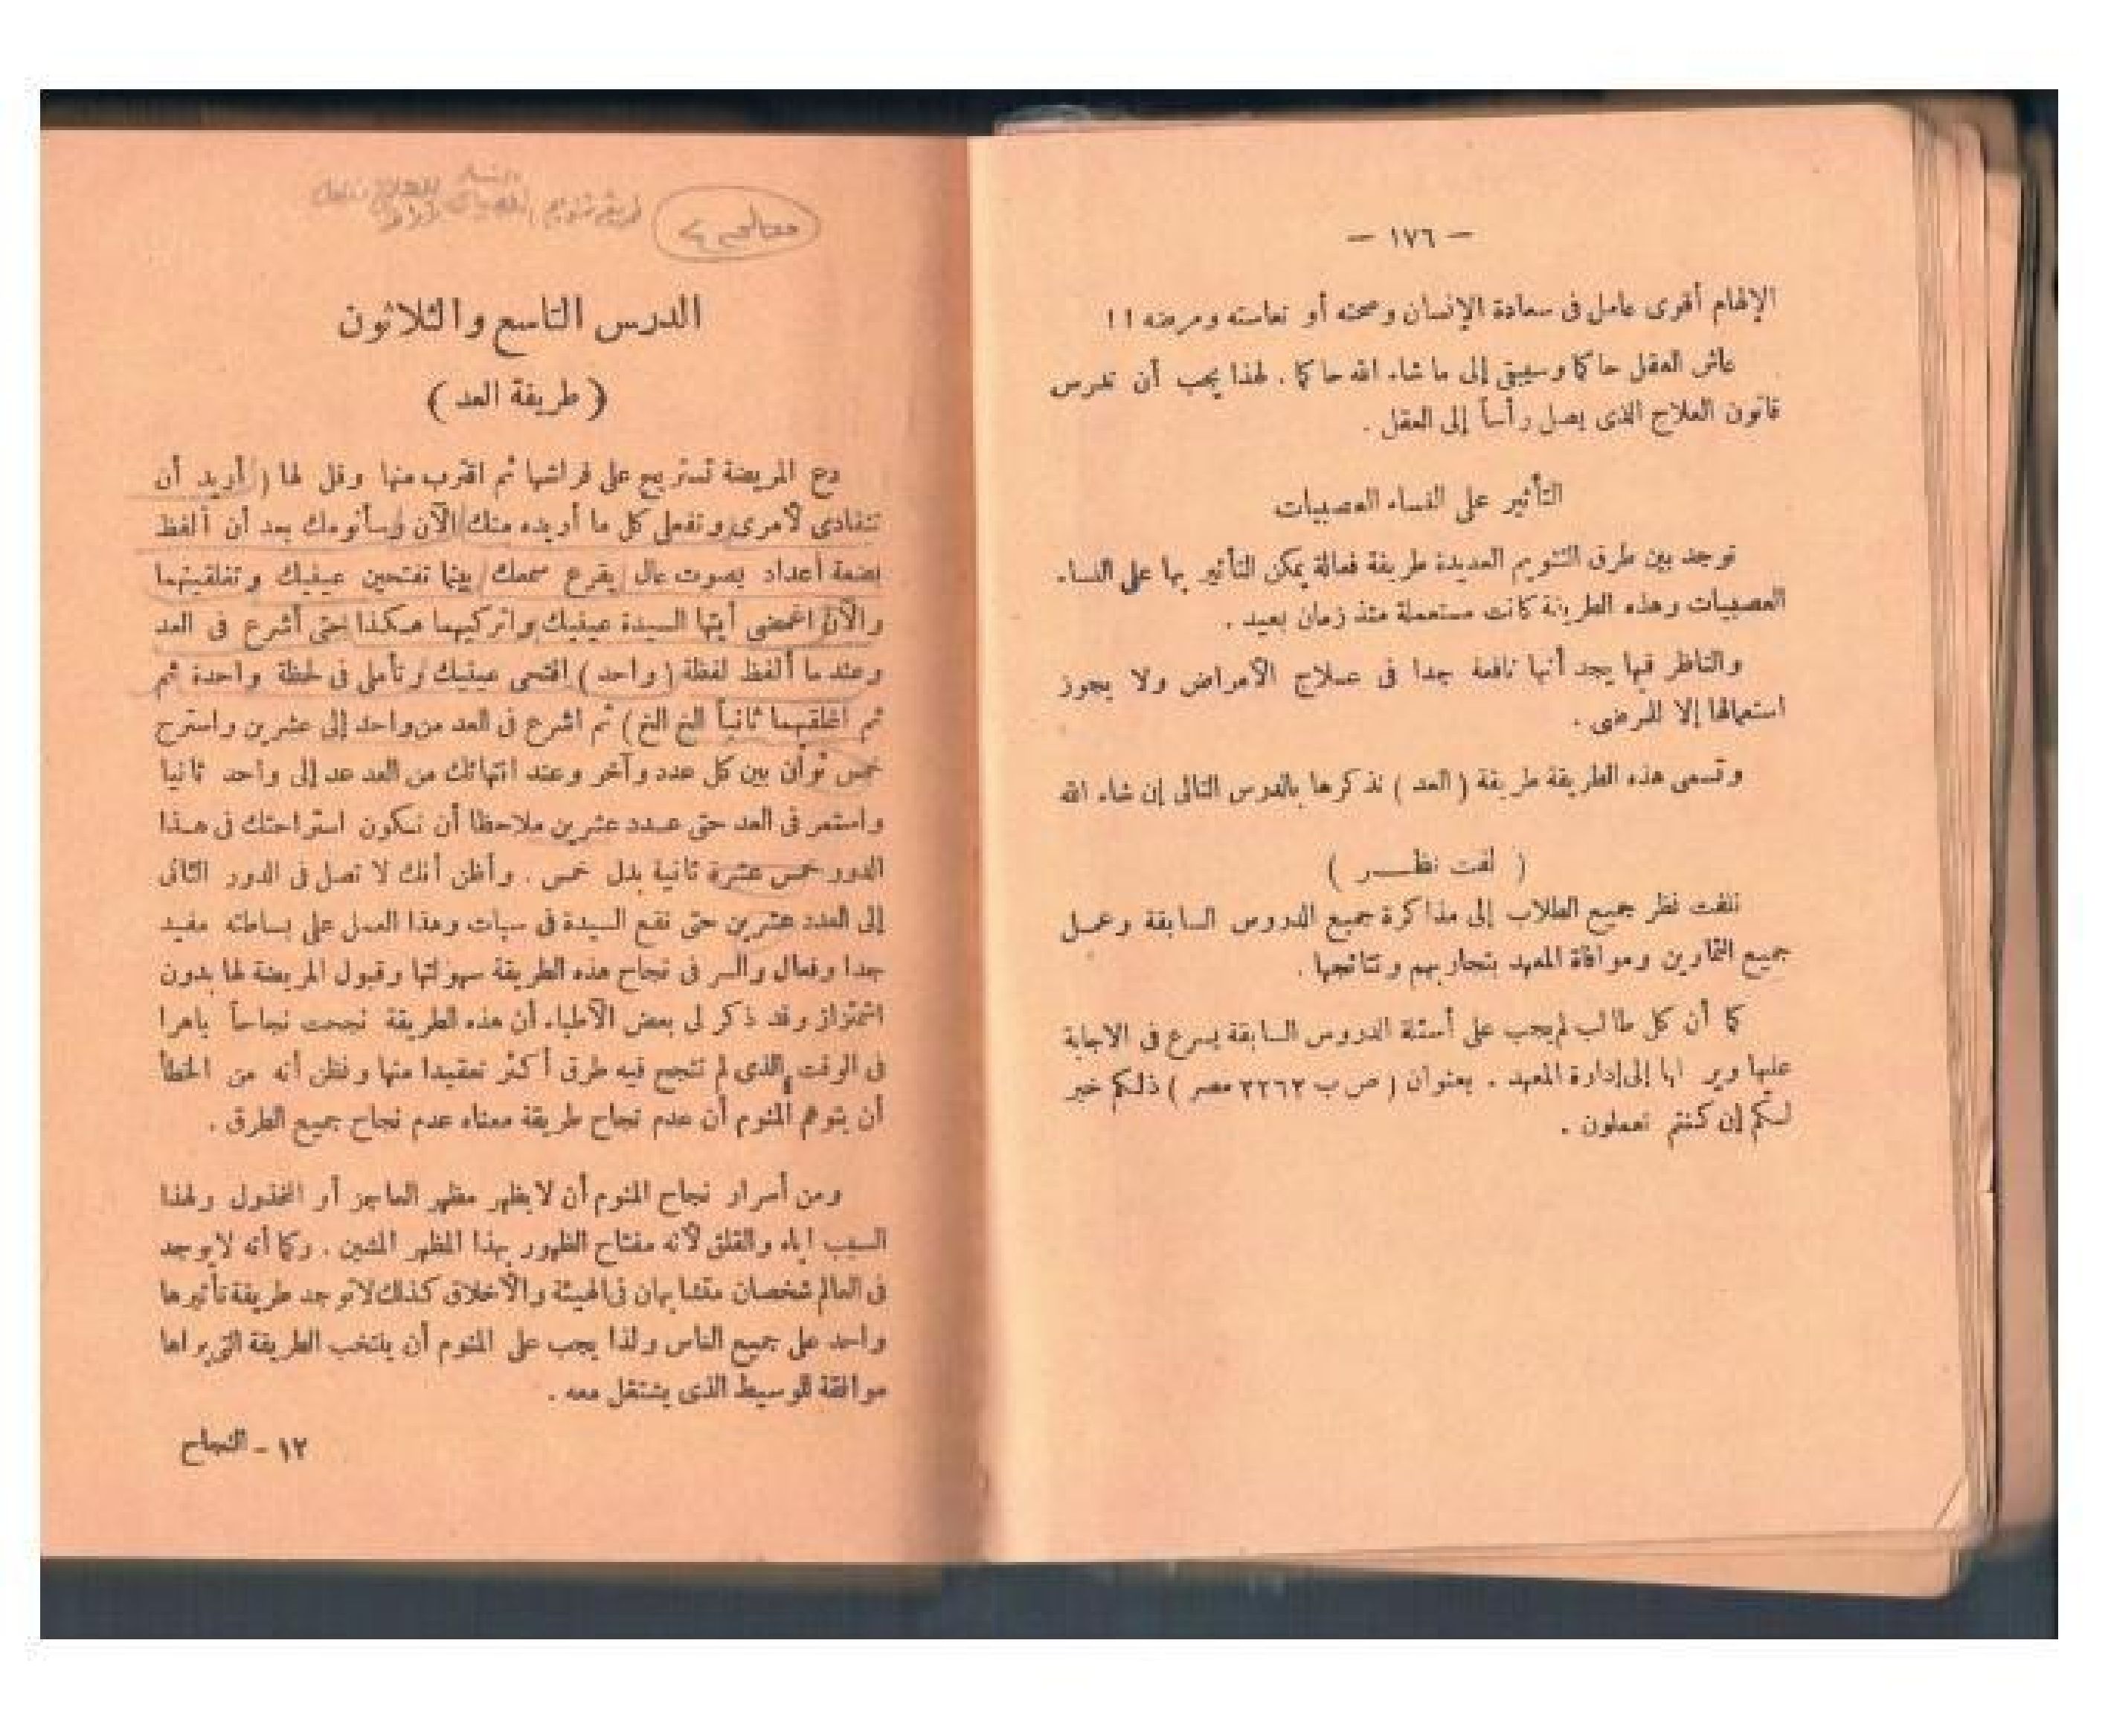 — ١٧٦ —
الإلهام أقوى عامل فى سعادة الإنسان وصحته أو تعاسته ومرضه !!
عاش العقل حاكما وسيبقى إلى ما شاء الله حاكما . لهذا يجب أن تدرس
قانون العلاج الذى يصل رأساً إلى العقل .
التأثير على النساء العصبيات
توجد بين طرق التنويم العديدة طريقة فعالة يمكن التأثير بها على النساء
العصبيات وهذه الطريقة كانت مستعملة منذ زمان بعيد .
والناظر فيها يجد أنها نافعة جدا فى عـلاج الأمراض ولا يجوز
استعمالها إلا للمرضى .
وتسمى هذه الطريقة طريقة ( العد ) نذكرها بالدرس التالى إن شاء الله
( لفت نظــر )
نلفت نظر جميع الطلاب إلى مذاكرة جميع الدروس السابقة وعمـل
جميع التمارين وموافاة المعهد بتجاربهم ونتائجها .
كما أن كل طالب لم يجب على أسئلة الدروس السابقة يسرع فى الاجابة
عليها وير لها إلى إدارة المعهد . بعنوان ( ص ب ٢٢٦٢ مصر ) ذلـكم خير
لـكم إن كنتم تعملون .
طريقة تنويم
الدرس التاسع والثلاثون
( طريقة العد )
دع المريضة تستريح على فراشها ثم اقترب منها وقل لها ( أريد أن
تنقادى لأمرى وتفعلى كل ما أريده منك الآن وسأنومك بعد أن ألفظ
بضعة أعداد بصوت عال يقرع سمعك بينما تفتحين عينيك وتغلقينهما
والآن اغمضى أيتها السيدة عينيك واتركيهما هـكذا حتى أشرع فى العد
وعندما ألفظ لفظة ( واحد ) افتحى عينيك وتأملى فى لحظة واحدة ثم
ثم اغلقيهما ثانياً الخ الخ ) ثم اشرع فى العد من واحد إلى عشرين واسترح
خمس ثوان بين كل عدد وآخر وعند انتهائك من العد عد إلى واحد ثانيا
واستمر فى العد حتى عـدد عشرين ملاحظا أن تـكون استراحتك فى هـذا
الدور خمس عشرة ثانية بدل خمس . وأظن أنك لا تصل فى الدور الثانى
إلى العدد عشرين حتى تقع السيدة فى سبات وهذا العمل على بساطته مفيد
جدا وفعال والسر فى نجاح هذه الطريقة سهولتها وقبول المريضة لها بدون
اشمئزاز وقد ذكر لى بعض الأطباء أن هذه الطريقة نجحت نجاحاً باهرا
فى الوقت الذى لم تنجح فيه طرق أكثر تعقيدا منها ونظن أنه من الخطأ
أن يتوهم المنوم أن عدم نجاح طريقة معناه عدم نجاح جميع الطرق .
ومن أسرار نجاح المنوم أن لا يظهر مظهر العاجز أو المخذول ولهذا
السبب اياه والقلق لأنه مفتاح الظهور بهذا المظهر المشين . وكما أنه لا يوجد
فى العالم شخصان متشابهان فى الهيئة والأخلاق كذلك لا توجد طريقة تأثيرها
واحد على جميع الناس ولذا يجب على المنوم أن ينتخب الطريقة التى يراها
موافقة للوسيط الذى يشتغل معه .
١٢ - النجاح